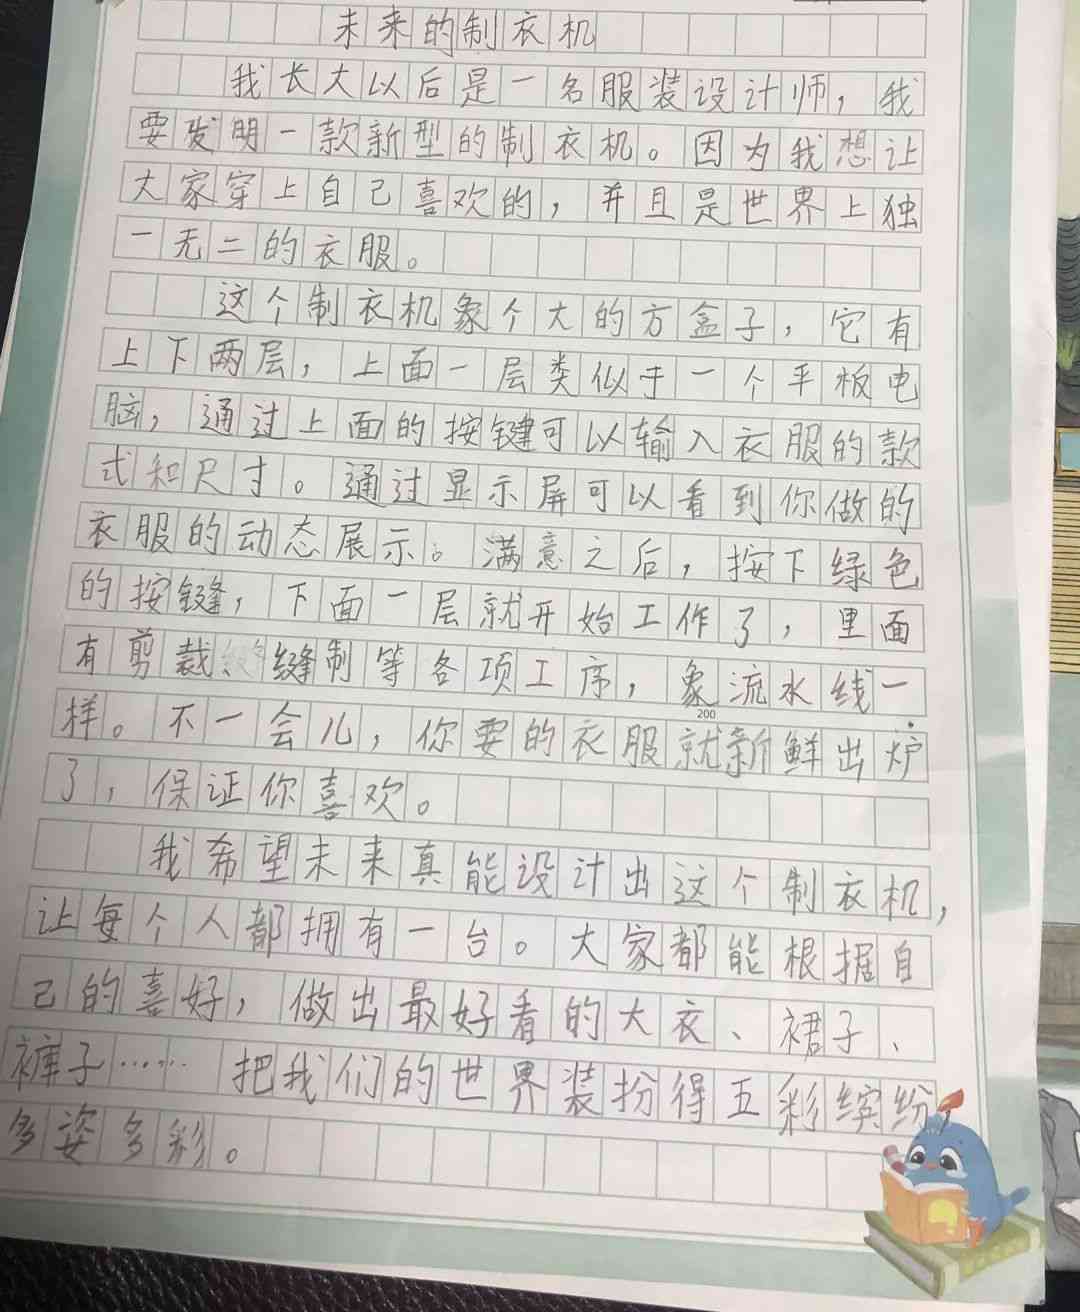 未来的制衣机
我长大以后是一名服装设计师，我
要发明一款新型的制衣机。因为我想让
大家穿上自己喜欢的，并且是世界上独
一无二的衣服。
这个制衣机象个大的方盒子，它有
上下两层，上面一层类似于一个平板电
脑，通过上面的按键可以输入衣服的款
式和尺寸。通过显示屏可以看到你做的
衣服的动态展示。满意之后，按下绿色
的按键，下面一层就开始工作了，里面
有剪裁缝制等各项工序，象流水线一
样。不一会儿，你要的衣服就新鲜出炉
200
了，保证你喜欢。
我希望未来真能设计出这个制衣机，
让每个人都拥有一台。大家都能根据自
己的喜好，做出最好看的大衣、裙子、
裤子……把我们的世界装扮得五彩缤纷
多姿多彩。